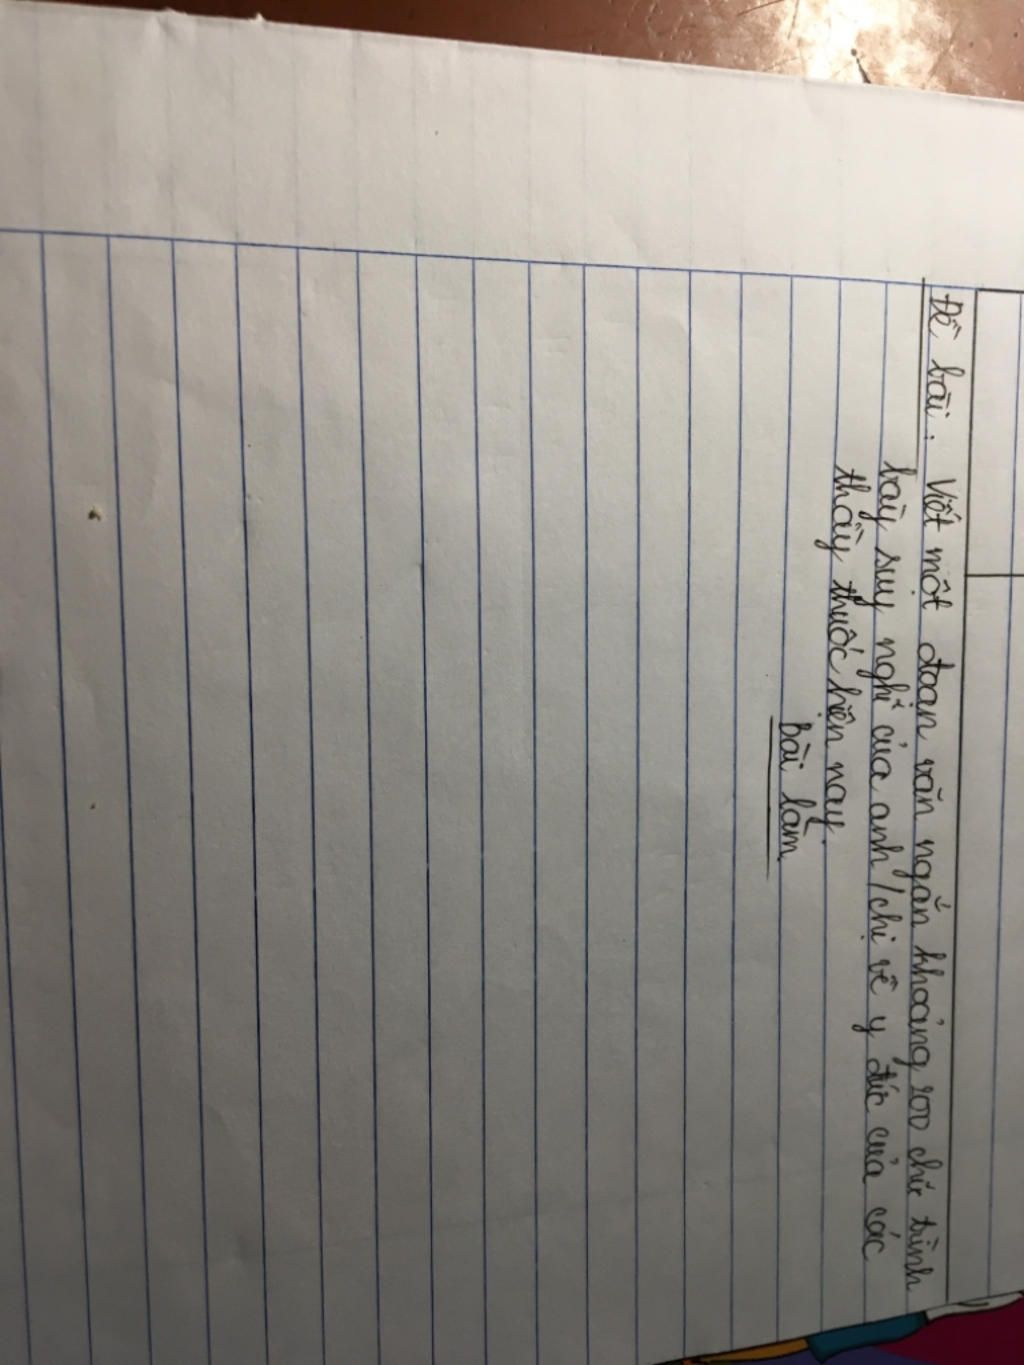 Đề bài: Viết một đoạn văn ngắn khoảng 200 chữ trình
bày suy nghĩ của anh/chị về y đức của các
thầy thuốc hiện nay.
Bài làm